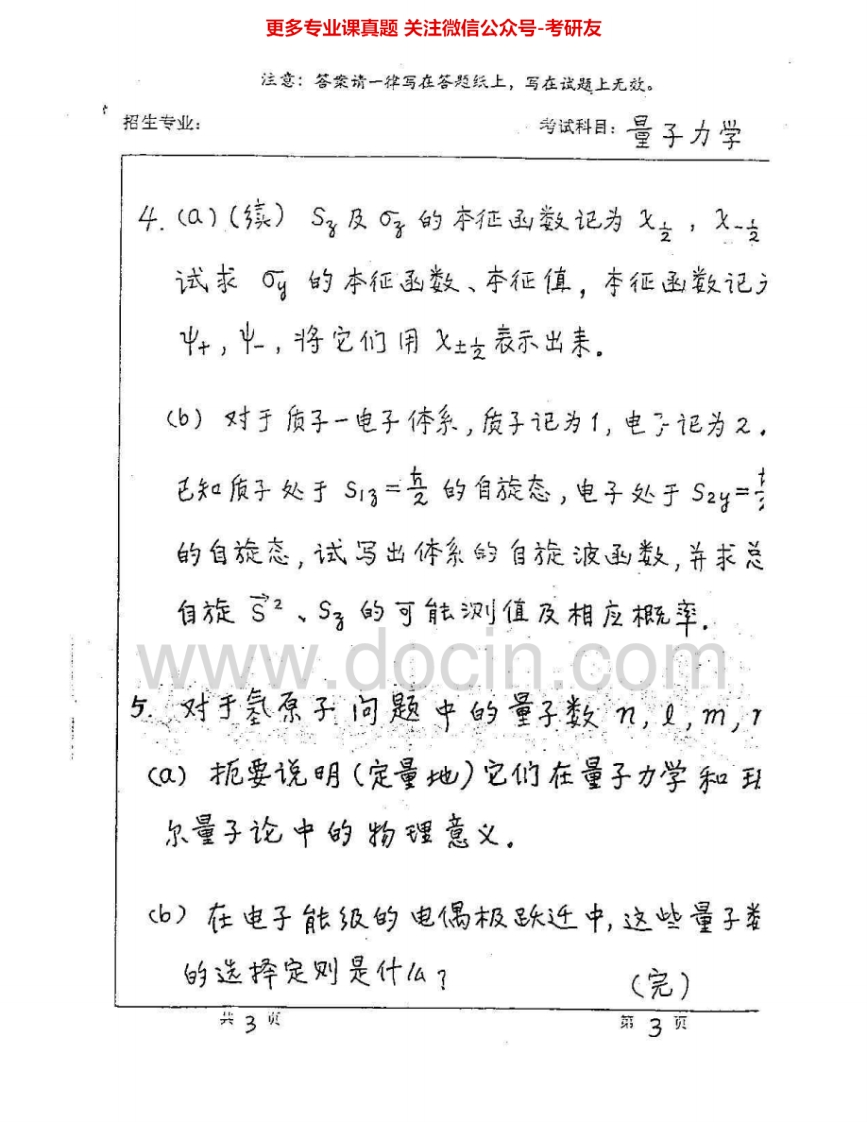 更多专业课真题 关注微信公众号-考研友
注意：答案请一律写在答题纸上，写在试题上无效。
招生专业：
考试科目：量子力学
4. (a)(续) S_z 及 σ_z 的本征函数记为 χ_{1/2}，χ_{-1/2}
试求 σ_y 的本征函数、本征值，本征函数记
ψ_+，ψ_-，将它们用 χ_{±1/2} 表示出来。
(b) 对于质子-电子体系，质子记为1，电子记为2.
已知质子处于 S_{1z}=ħ/2 的自旋态，电子处于 S_{2y}=
的自旋态，试写出体系的自旋波函数，并求总
自旋 S⃗²、S_z 的可能测值及相应概率.
www.docin.com
5. 对于氢原子问题中的量子数 n, l, m,
(a) 扼要说明(定量地)它们在量子力学和
尔量子论中的物理意义.
(b) 在电子能级的电偶极跃迁中，这些量子数
的选择定则是什么？
(完)
共 3 页
第 3 页